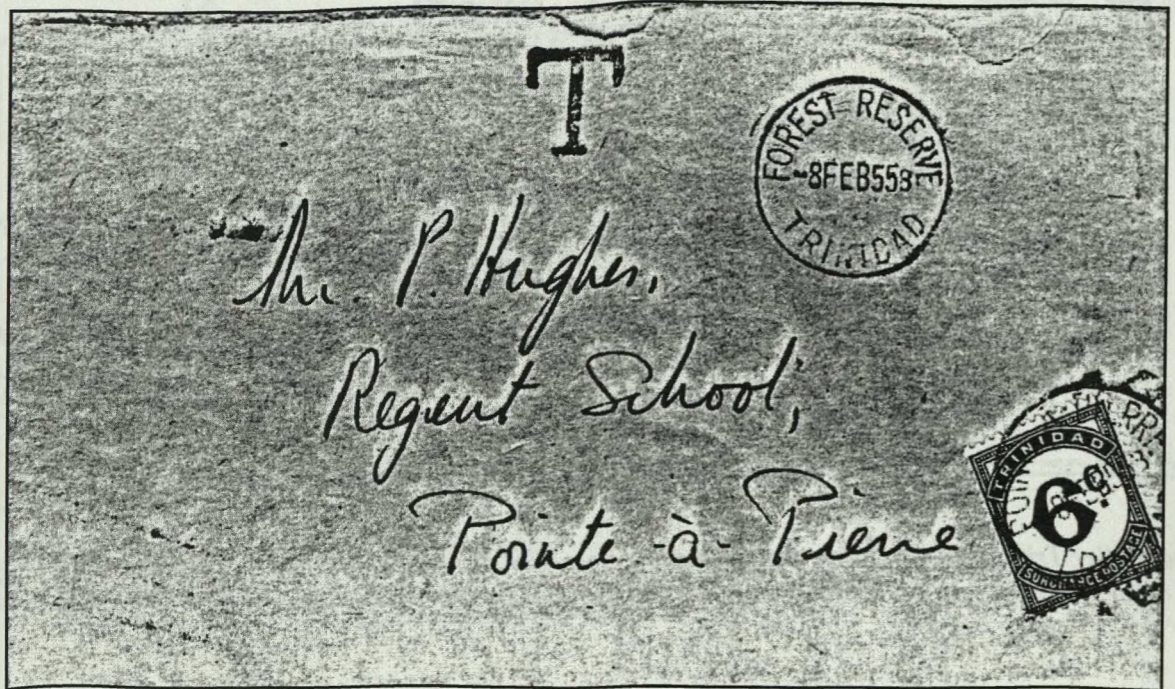 T
FOREST RESERVE
-8FEB55
TRINIDAD
Mr. P. Hughes,
Regent School,
Pointe-à-Pierre
TRINIDAD
6c.
SURCHARGE POSTAGE